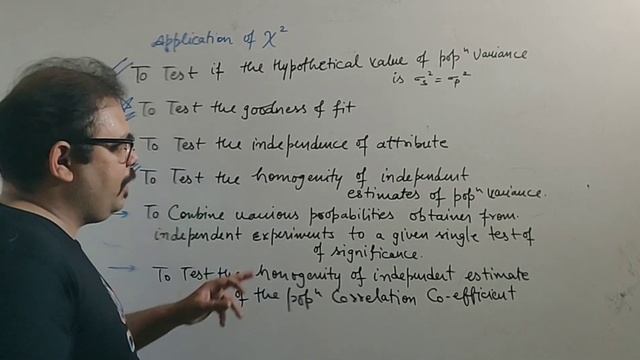 Application of χ²
To Test if the Hypothetical value of popⁿ variance
is σs² = σp²
To Test the goodness of fit
To Test the independence of attribute
To Test the homogenity of independent
estimates of popⁿ variance.
To Combine various propabilities obtainer from
independent experiments to a given single test of
of significance.
To Test the homogenity of independent estimate
of the popⁿ Correlation Co-efficient